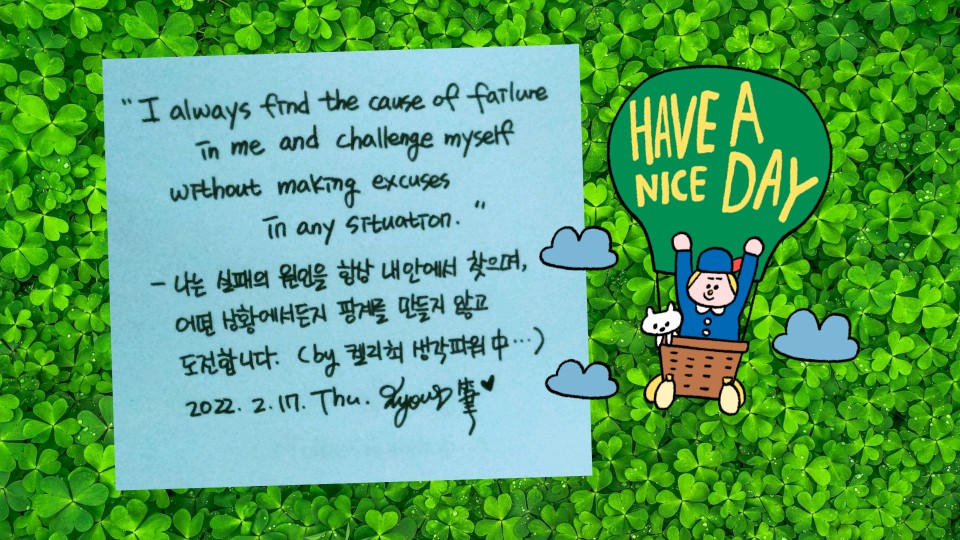 "I always find the cause of failure
in me and challenge myself
without making excuses
in any situation."
- 나는 실패의 원인을 항상 내 안에서 찾으며,
어떤 상황에서든지 핑계를 만들지 않고
도전합니다. (by 켈리최 생각파워 中…)
2022. 2. 17. Thu. 筆♥
HAVE A
NICE DAY